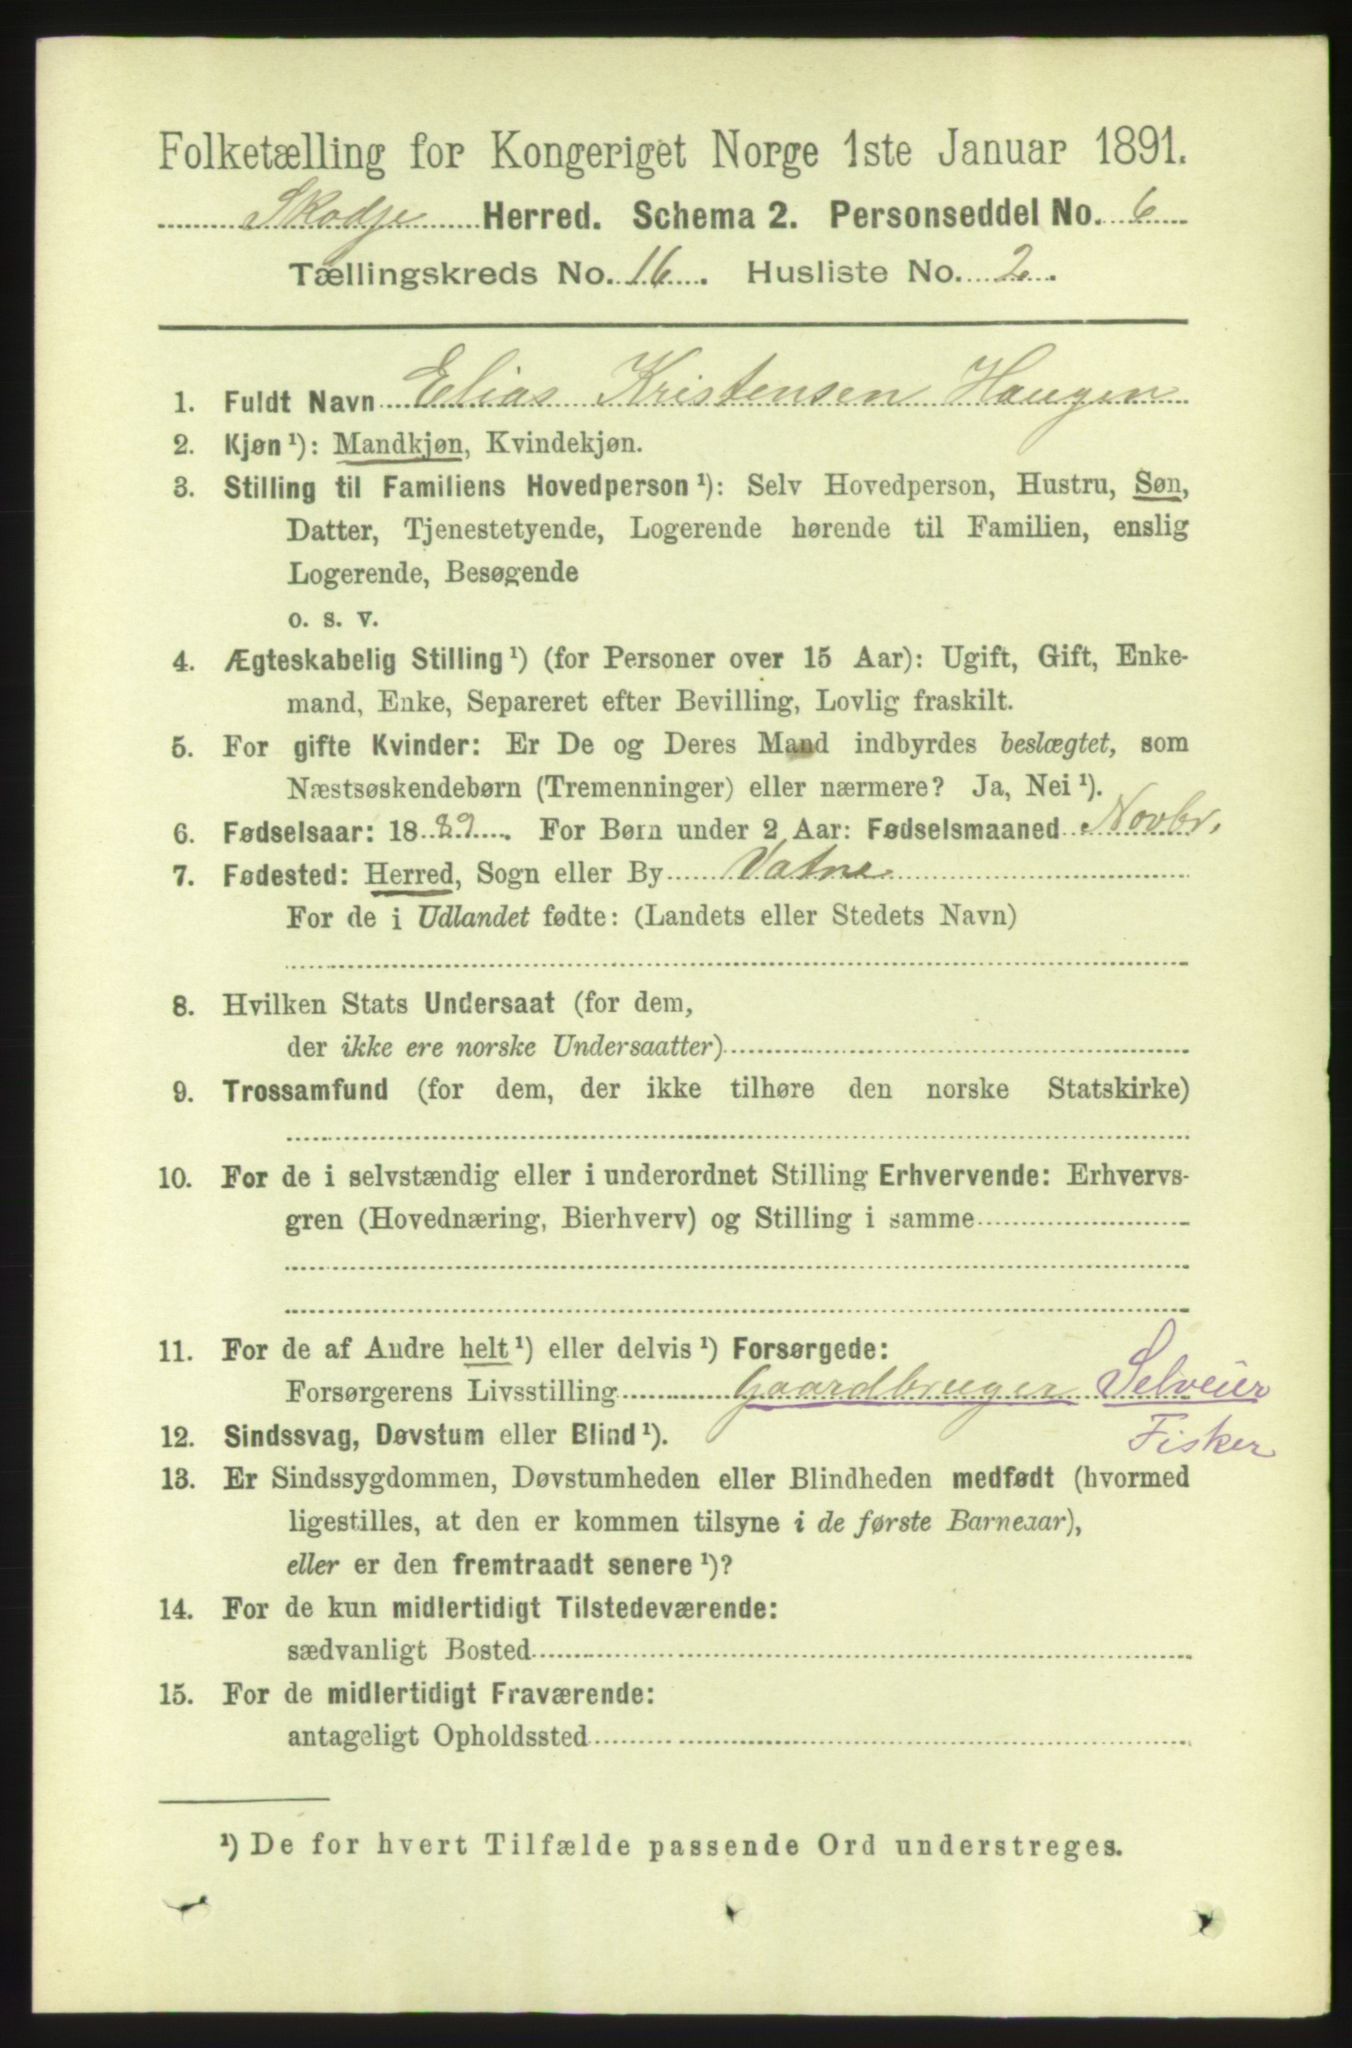 Folketælling for Kongeriget Norge 1ste Januar 1891.
Skodje Herred. Schema 2. Personseddel No. 6
Tællingskreds No. 16. Husliste No. 2.
1. Fuldt Navn Elias Kristensen Haugen
2. Kjøn ¹): Mandkjøn, Kvindekjøn.
3. Stilling til Familiens Hovedperson ¹): Selv Hovedperson, Hustru, Søn,
Datter, Tjenestetyende, Logerende hørende til Familien, enslig
Logerende, Besøgende
o. s. v.
4. Ægteskabelig Stilling ¹) (for Personer over 15 Aar): Ugift, Gift, Enke-
mand, Enke, Separeret efter Bevilling, Lovlig fraskilt.
5. For gifte Kvinder: Er De og Deres Mand indbyrdes beslægtet, som
Næstsøskendebørn (Tremenninger) eller nærmere? Ja, Nei ¹).
6. Fødselsaar: 1889. For Børn under 2 Aar: Fødselsmaaned Novbr.
7. Fødested: Herred, Sogn eller By Vatne
For de i Udlandet fødte: (Landets eller Stedets Navn)
8. Hvilken Stats Undersaat (for dem,
der ikke ere norske Undersaatter)
9. Trossamfund (for dem, der ikke tilhøre den norske Statskirke)
10. For de i selvstændig eller i underordnet Stilling Erhvervende: Erhvervs-
gren (Hovednæring, Bierhverv) og Stilling i samme
11. For de af Andre helt ¹) eller delvis ¹) Forsørgede:
Forsørgerens Livsstilling Gaardbruger Selveier
Fisker
12. Sindssvag, Døvstum eller Blind ¹).
13. Er Sindssygdommen, Døvstumheden eller Blindheden medfødt (hvormed
ligestilles, at den er kommen tilsyne i de første Barneaar),
eller er den fremtraadt senere ¹)?
14. For de kun midlertidigt Tilstedeværende:
sædvanligt Bosted
15. For de midlertidigt Fraværende:
antageligt Opholdssted
¹) De for hvert Tilfælde passende Ord understreges.